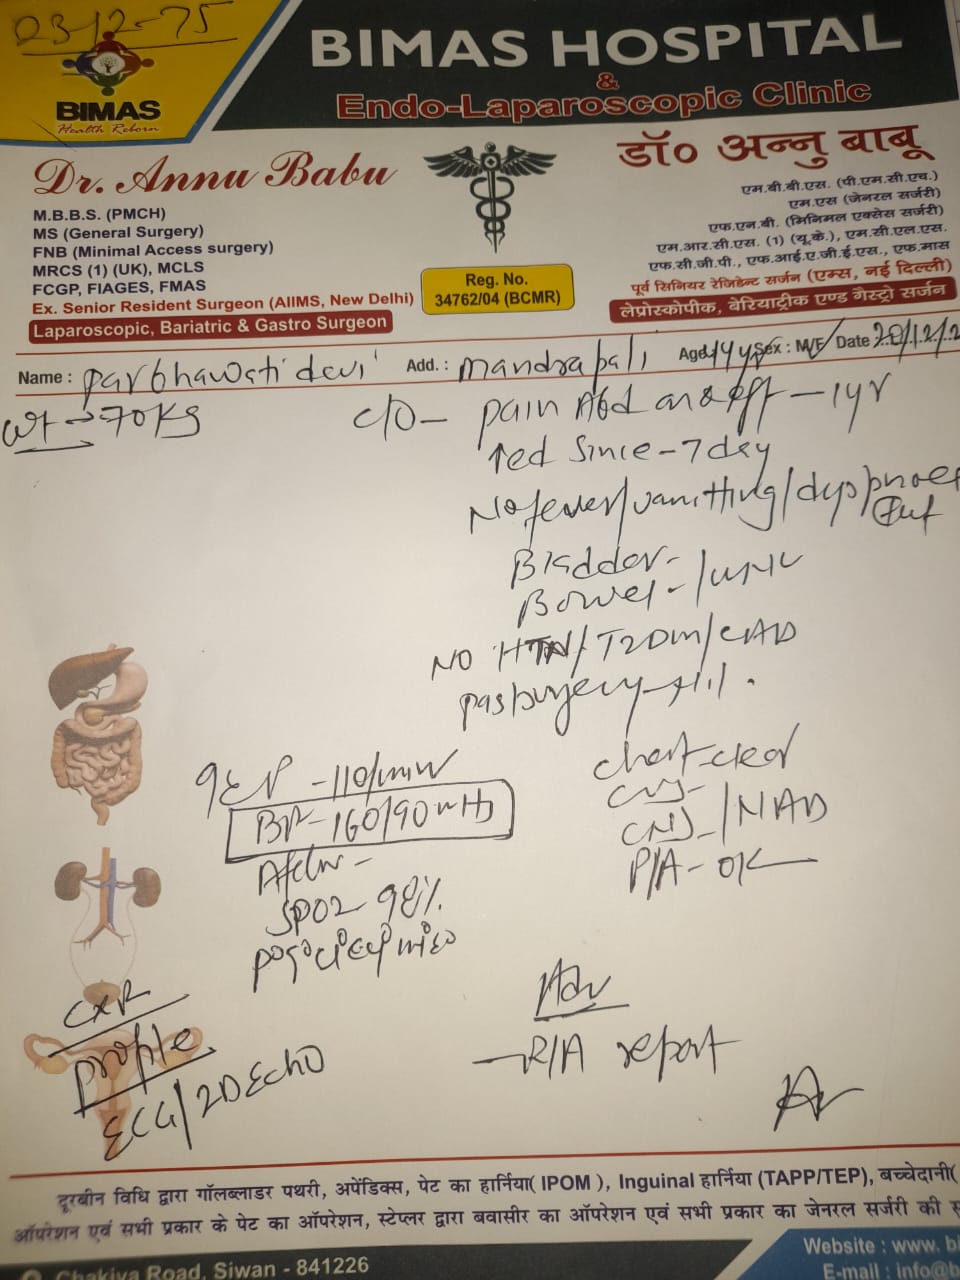 03-12-75
BIMAS HOSPITAL
&
Endo-Laparoscopic Clinic
BIMAS
Health Reborn
Dr. Annu Babu
M.B.B.S. (PMCH)
MS (General Surgery)
FNB (Minimal Access surgery)
MRCS (1) (UK), MCLS
FCGP, FIAGES, FMAS
Ex. Senior Resident Surgeon (AIIMS, New Delhi)
Laparoscopic, Bariatric & Gastro Surgeon
Reg. No.
34762/04 (BCMR)
डॉ० अन्नु बाबू
एम.बी.बी.एस. (पी.एम.सी.एच.)
एम.एस (जेनरल सर्जरी)
एफ.एन.बी. (मिनिमल एक्सेस सर्जरी)
एम.आर.सी.एस. (1) (यू.के.), एम.सी.एल.एस.
एफ.सी.जी.पी., एफ.आई.ए.जी.ई.एस., एफ.मास
पूर्व सिनियर रेजिडेन्ट सर्जन (एम्स, नई दिल्ली)
लेप्रोस्कोपीक, बेरियाट्रीक एण्ड गैस्ट्रो सर्जन
Name : parbhawati devi Add. : mandrapali Age Sex : M/F Date 20/12/2
wt → 70 KG
c/o - pain Abd on & off - 1yr
↑ed Since - 7 day
No fever/vomitting/
Bladder -
Bowel -
NO HTN/T2DM/CAD
past surgery - Nil.
- 110/min
BP - 160/90 mmHg
SPO2 98%
chest - clear
CVS -
CNS - / NAD
P/A - OK
CXR
profile
ECG/2D Echo
Adv
- R/A report
दूरबीन विधि द्वारा गॉलब्लाडर पथरी, अपेंडिक्स, पेट का हार्निया( IPOM ), Inguinal हार्निया (TAPP/TEP), बच्चेदानी(
ऑपरेशन एवं सभी प्रकार के पेट का ऑपरेशन, स्टेप्लर द्वारा बवासीर का ऑपरेशन एवं सभी प्रकार का जेनरल सर्जरी की
Chakiya Road, Siwan - 841226
Website : www. bi
E-mail : info@b